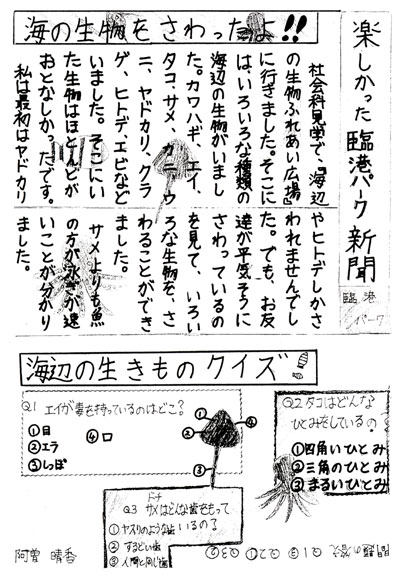 楽しかった臨港パーク新聞
臨港
パーク
海の生物をさわったよ!!
社会科見学で、「海辺
の生物ふれあい広場」
に行きました。そこに
は、いろいろな種類の
海辺の生物がいまし
た。カワハギ、エイ、
タコ、サメ、カニ、ウ
ニ、ヤドカリ、クラ
ゲ、ヒトデ、エビなど
いました。そこにい
た生物はほとんどが
おとなしかったです。
私は最初はヤドカリ
やヒトデしかさ
われませんでし
た。でも、お友
達が平気そうに
さわっているの
を見て、いろい
ろな生物を、さ
わることができ
ました。
サメよりも魚
の方が泳ぎが速
いことが分かり
ました。
海辺の生きものクイズ!
Q1 エイが毒を持っているのはどこ?
①目 ④口
②エラ
③しっぽ
① ④
②
③
Q2タコはどんな
ひとみをしているの?
①四角いひとみ
②三角のひとみ
③まるいひとみ
ドチ
Q3 サメはどんな歯をもって
いるの?
①ヤスリのような歯
②するどい歯
③人間と同じ歯
問題の答え Q1③ Q2①
阿曽 晴香